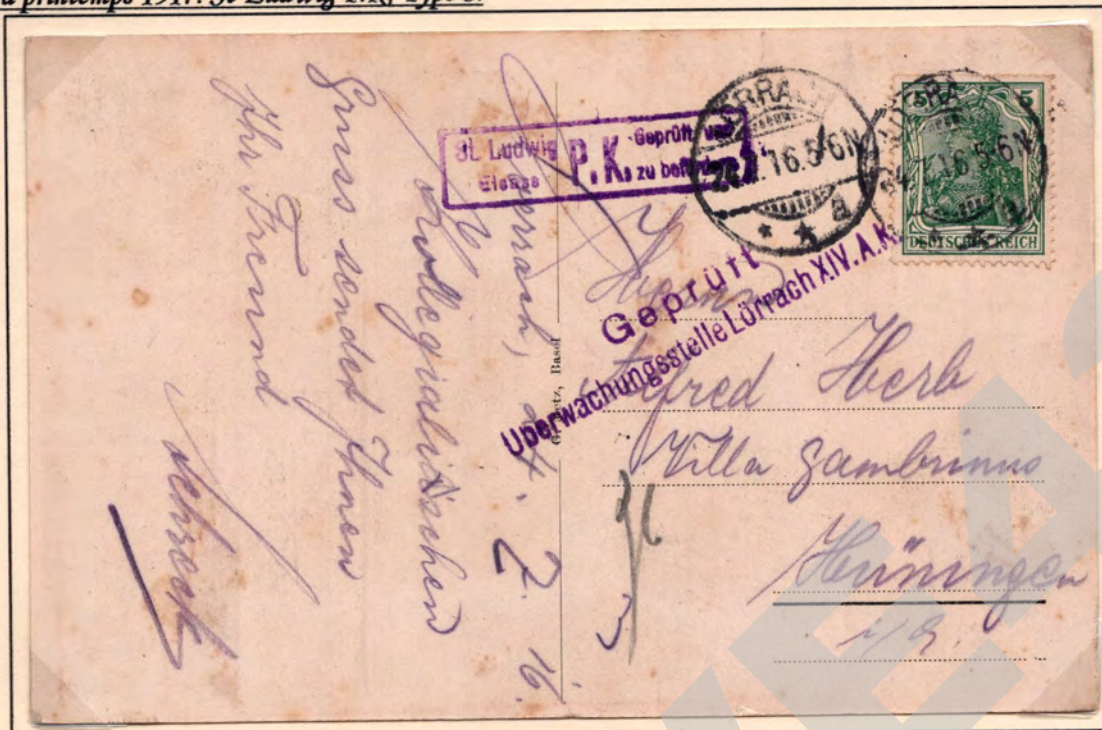 printemps 1917. St Ludwig P.K, type
St. Ludwig
Elsass
P.K.
Geprüft und
zu befördern
LÖRRACH
24.2.16.5-6N
a
5 5
DEUTSCHES REICH
Geprüft
Überwachungsstelle Lörrach XIV. A.K.
Loerrach, 24. 2. 16.
Kolegialischen
Gruss sendet Ihnen
Ihr Freund
Schreck
Basel
Herrn
Alfred Herb
Villa Gambrinus
Hüningen
i/E.